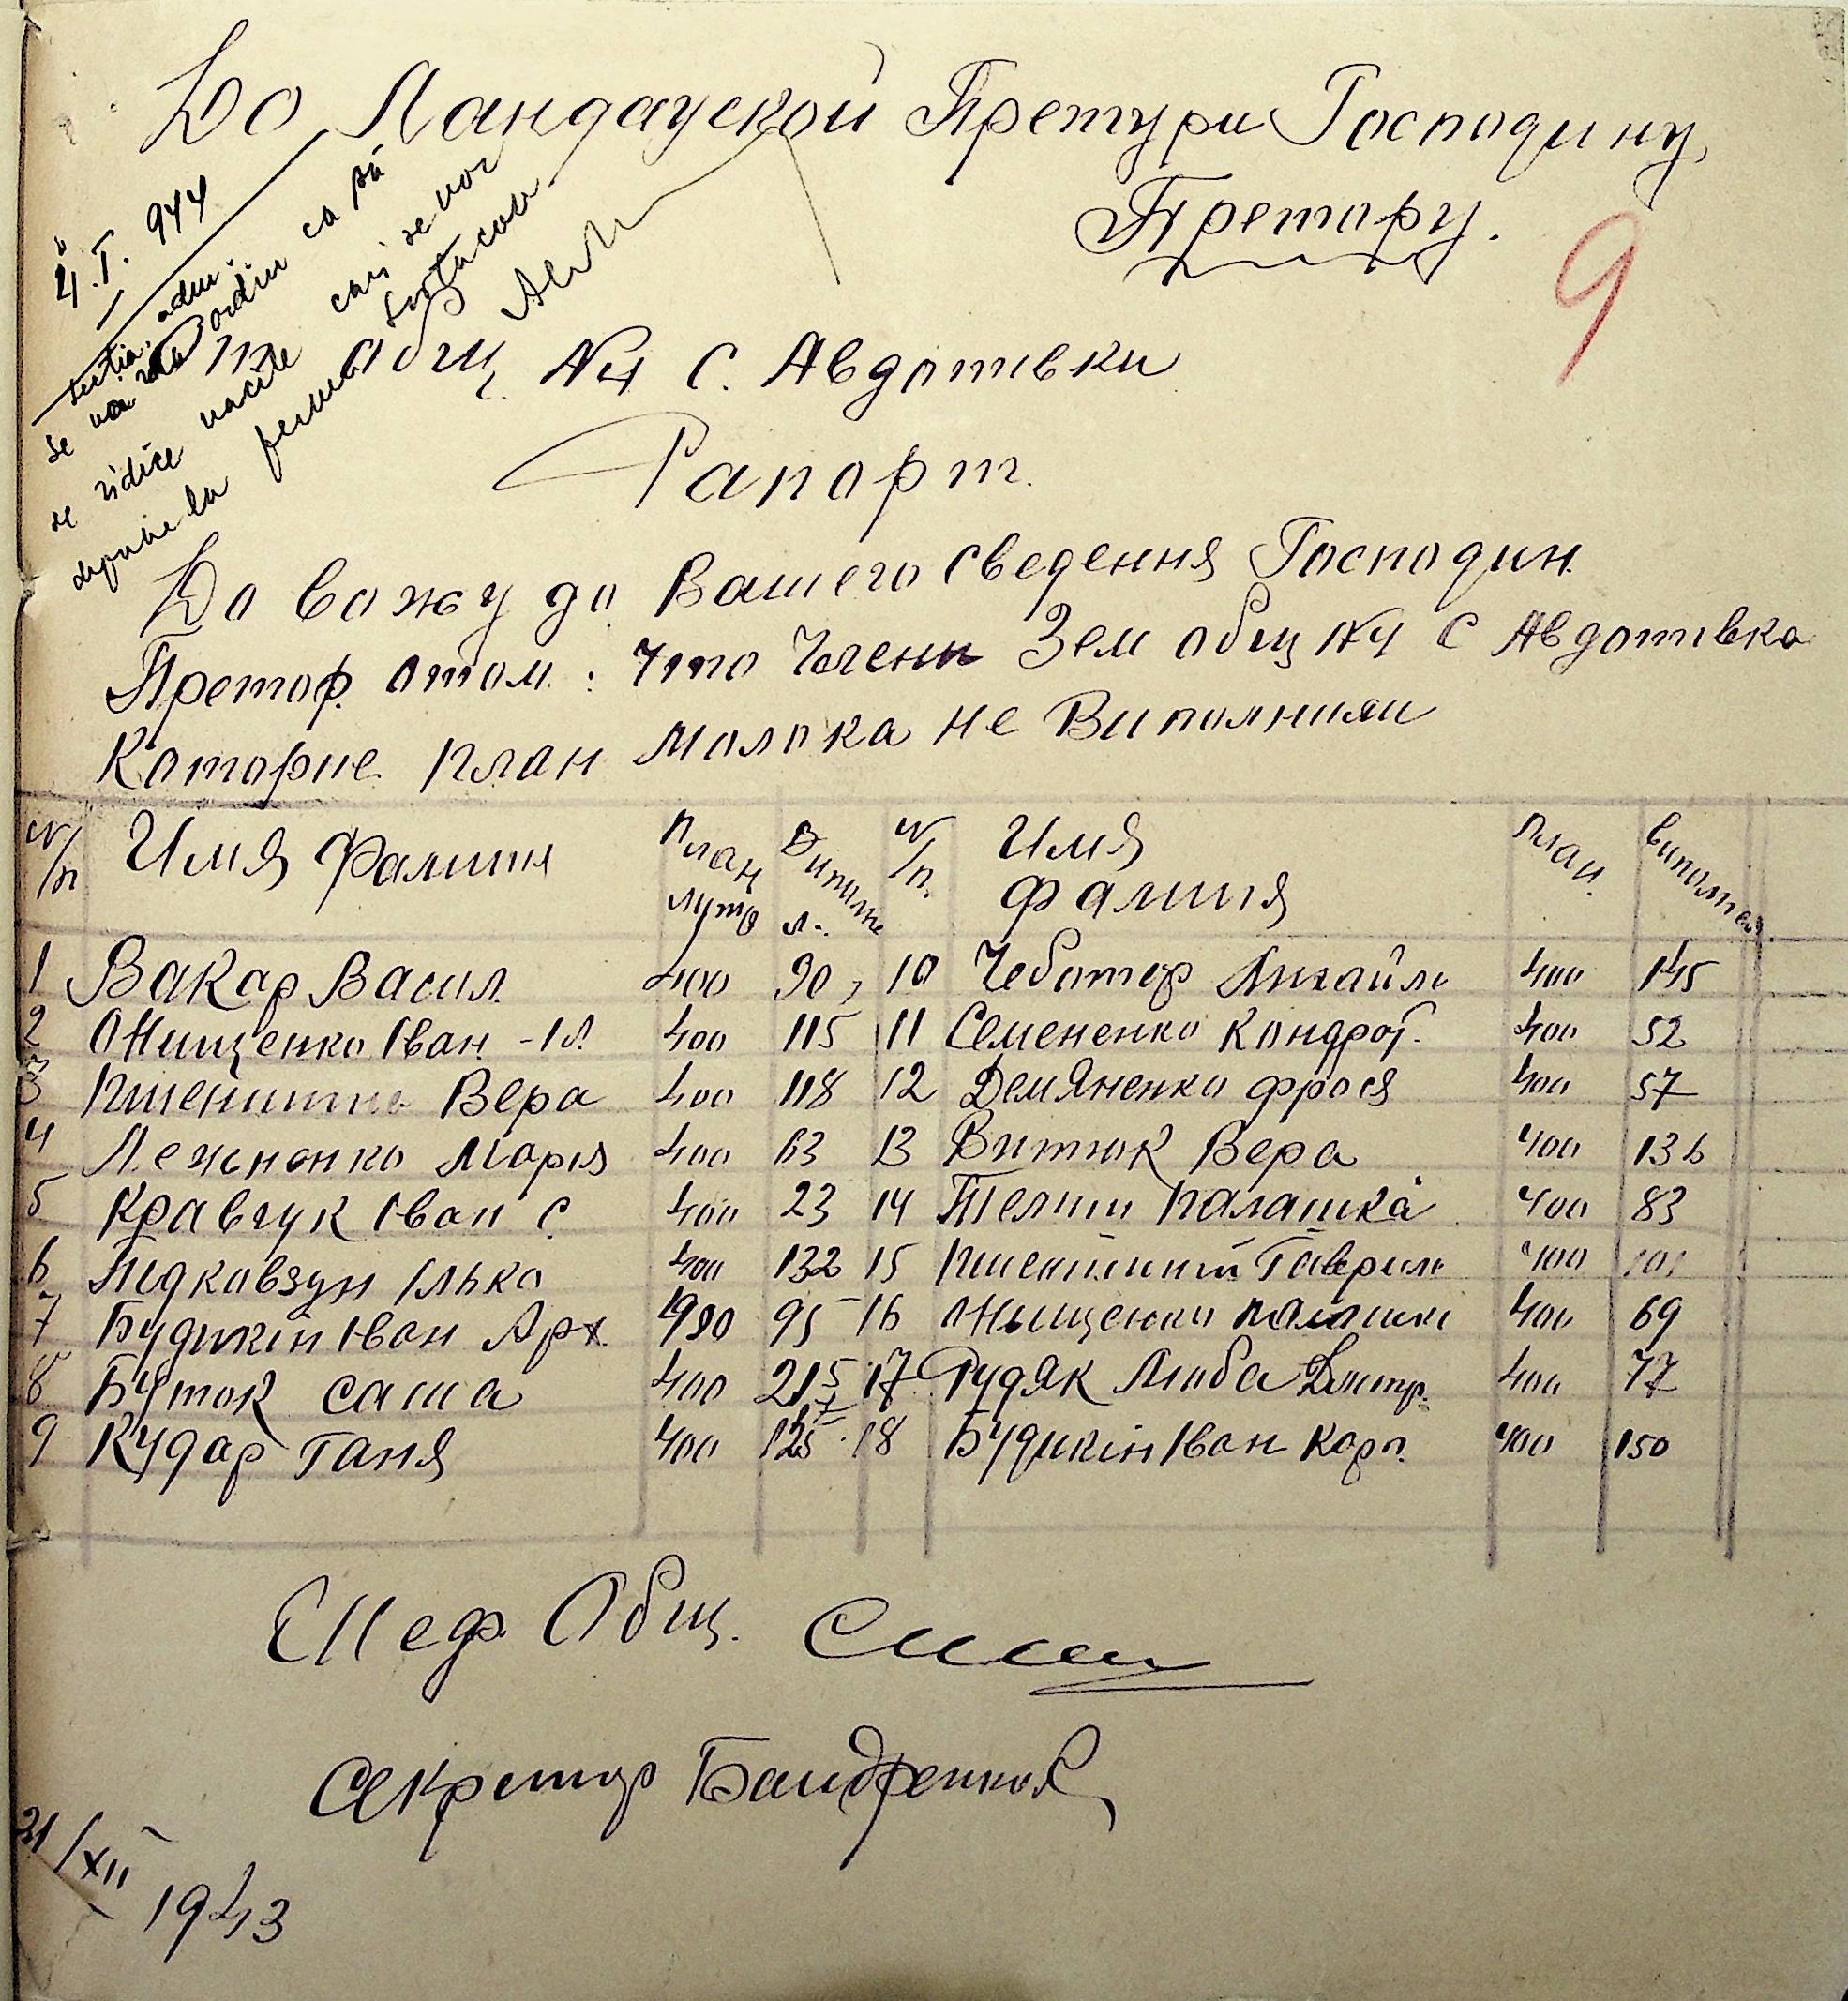 До Ландауской Претури Господину
Претору.
9
4.I.944
Secția adm.
se va da ordin ca să
se ridice vacile cari se vor
depune la ferma
от общ. N4 с. Авдотівки
Рапорт.
До вожу до Вашего сведення Господин
Претор. отом: что Члени Зем общ N4 с Авдотівка
Которие план молока не Виполнили
N/п Имя Фамилия План лутр Виполне л. N/п. Имя фамилия план. виполнен
1 Вакар Васил. 400 90, 10 Чеботар Михайло 400 145
2 Онищенко Іван - Іл. 400 115 11 Семененко Кондрат. 400 52
3 Пшенишна Вера 400 118 12 Демяненко фрося 400 57
4 Лежненко Мария 400 63 13 Витюк Вера 400 136
5 Кравчук Іван С. 400 23 14 Телиги Палашка 400 83
6 Підковзун Ілько 400 132 15 Пшенишний Гаврило 400 101
7 Будикін Іван Арх. 400 95 16 Онищенко Палашка 400 69
8 Буток саша 400 215 17 Рудяк Люба Дмитр. 400 77
9 Кудар Ганя 400 125 18 Будикін Іван Карп. 400 150
Шеф Общ.
Секретар
31/XII 1943